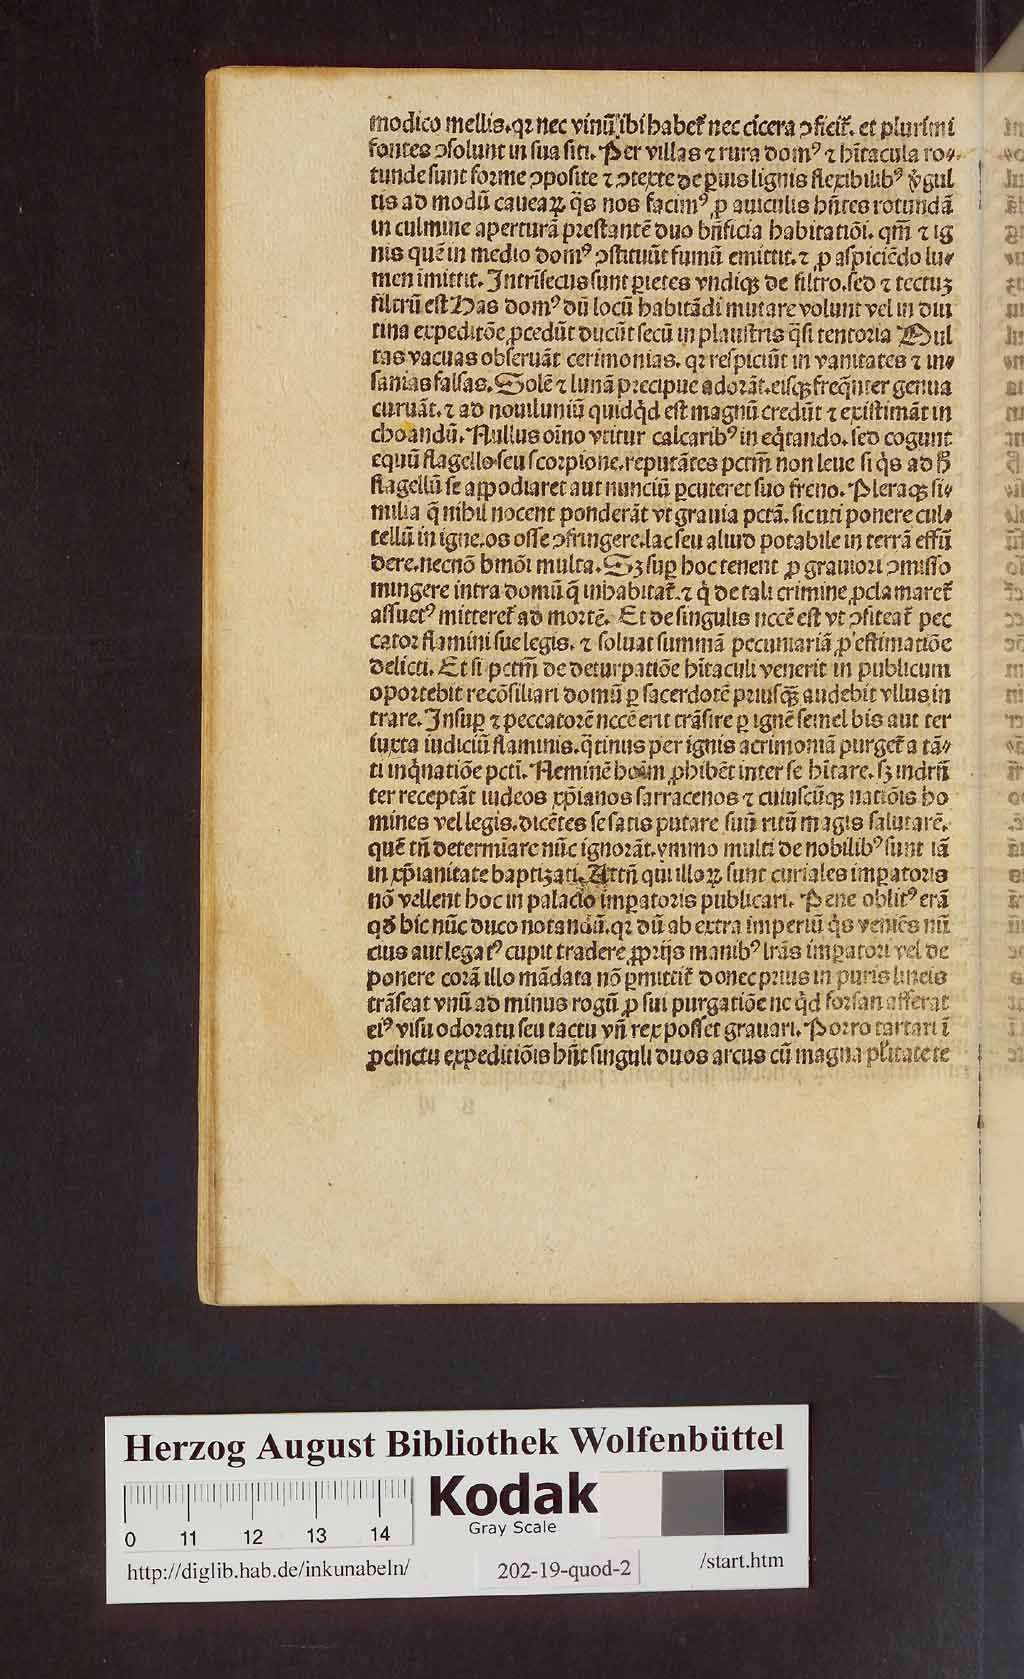 modico mellis. qꝛ nec vinũ ibi habet᷑ nec cicera ↄficit᷑. et plurimi
fontes ↄsolunt in sua siti. Per villas ⁊ rura domꝰ ⁊ hītacula ro⸗
tunde sunt forme ↄposite ⁊ ↄtexte de ꝑuis lignis flexibilibꝰ v̓gul
tis ad modũ caueaꝝ. q̃s nos facimꝰ ꝓ auiculis hñtes rotundã
in culmine aperturã prestantẽ duo bñficia habitatiõi. qm̃ ⁊ ig
nis quẽ in medio domꝰ ↄstituũt fumũ emittit. ⁊ ꝓ aspiciẽdo lu⸗
men imittit. Intrīsecus sunt ꝑietes vndiqꝫ de filtro. sed ⁊ tectuꝫ
filtrũ est Has domꝰ dũ locũ habitãdi mutare volunt vel in diu
tina expeditõe ꝓcedũt ducũt secũ in plaustris q̃si tentoria Mul
tas vacuas obseruãt cerimonias. qꝛ respiciũt in vanitates ⁊ in⸗
sanias falsas. Solẽ ⁊ lunã precipue adorãt. eisqꝫ freq̃nter genua
curuãt. ⁊ ad nouiluniũ quidq̇d est magnũ credũt ⁊ existimãt in
choandũ. Nullus oĩno vtitur calcaribꝰ in eq̇tando. sed cogunt
equũ flagello seu scorpione. reputãtes pctm̃ non leue si q̇s ad h̃
flagellũ se appodiaret aut nunciũ ꝑcuteret suo freno. Pleraqꝫ si⸗
milia q̃ nihil nocent ponderãt vt grauia pctã. sicuti ponere cul⸗
tellũ in igne. os osse ↄfringere. lac seu aliud potabile in terrã effũ
dere. necnõ hmõi multa. Sꝫ suꝑ hoc tenent ꝓ grauiori ↄmisso
mingere intra domũ q̃ inhabitat᷑. ⁊ q̇ de tali crimine ꝓclamaret᷑
assuetꝰ mitteret᷑ ad mortẽ. Et de singulis nccẽ est vt ↄfiteat᷑ pec
cator flamini sue legis. ⁊ soluat summã pecuniariã ꝓ estimatiõe
delicti. Et si pctm̃ de deturpatiõe hītaculi venerit in publicum
oportebit recõsiliari domũ ꝑ sacerdotẽ priusq̃ꝫ audebit vllus in
trare. Insuꝑ ⁊ peccatorẽ nccẽ erit trãsire ꝑ ignẽ semel bis aut ter
iuxta iudiciũ flaminis. q̃tinus per ignis acrimoniã purget᷑ a tã⸗
ti inq̇natiõe pcti. Neminẽ hoīm ꝓhibẽt inter se hītare. sꝫ indrñ
ter receptãt iudeos xp̃ianos sarracenos ⁊ cuiuscũqꝫ natiõis ho
mines vel legis. dicẽtes se satis putare suũ ritũ magis salutarẽ.
quẽ tñ determīare nũc ignorãt. ymmo multi de nobilibꝰ sunt iã
in xp̃ianitate baptizati. Attñ qui illoꝝ sunt curiales impatoris
nõ vellent hoc in palacio impatoris publicari. Pene oblitꝰ erã
qḋ hic nũc duco notandũ. qꝛ dũ ab extra imperiũ q̇s veniẽs nũ
cius aut legatꝰ cupit tradere ꝓprijs manibꝰ lrãs impatori vel de
ponere corã illo mãdata nõ ꝑmittit᷑ donec prius in puris lineis
trãseat vnũ ad minus rogũ ꝓ sui purgatiõe ne q̇d forsan afferat
eiꝰ visu odoratu seu tactu vñ rex posset grauari. Porro tartari ī
ꝓcinctu expeditiõis hñt singuli duos arcus cũ magna pl̃itate te
Herzog August Bibliothek Wolfenbüttel
Kodak
Gray Scale
0 11 12 13 14
http://diglib.hab.de/inkunabeln/ 202-19-quod-2 /start.htm